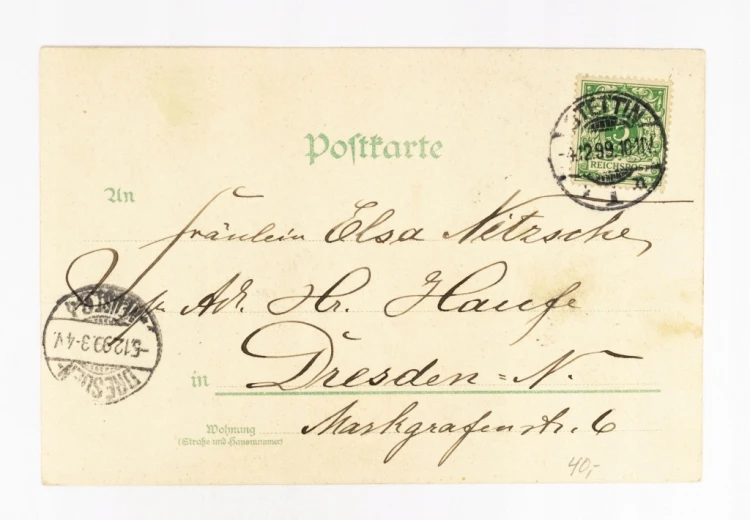 Postkarte
STETTIN
5
-4.12.99.10-11V.
REICHSPOST
1
An
Fräulein Elsa Nitzsche,
Adr. Hr. Haufe
DRESDEN-
NEUST.
-5.12.99.3-4V.
in Dresden=N.
Wohnung
(Straße und Hausnummer)
Markgrafenstr. 6
40,-